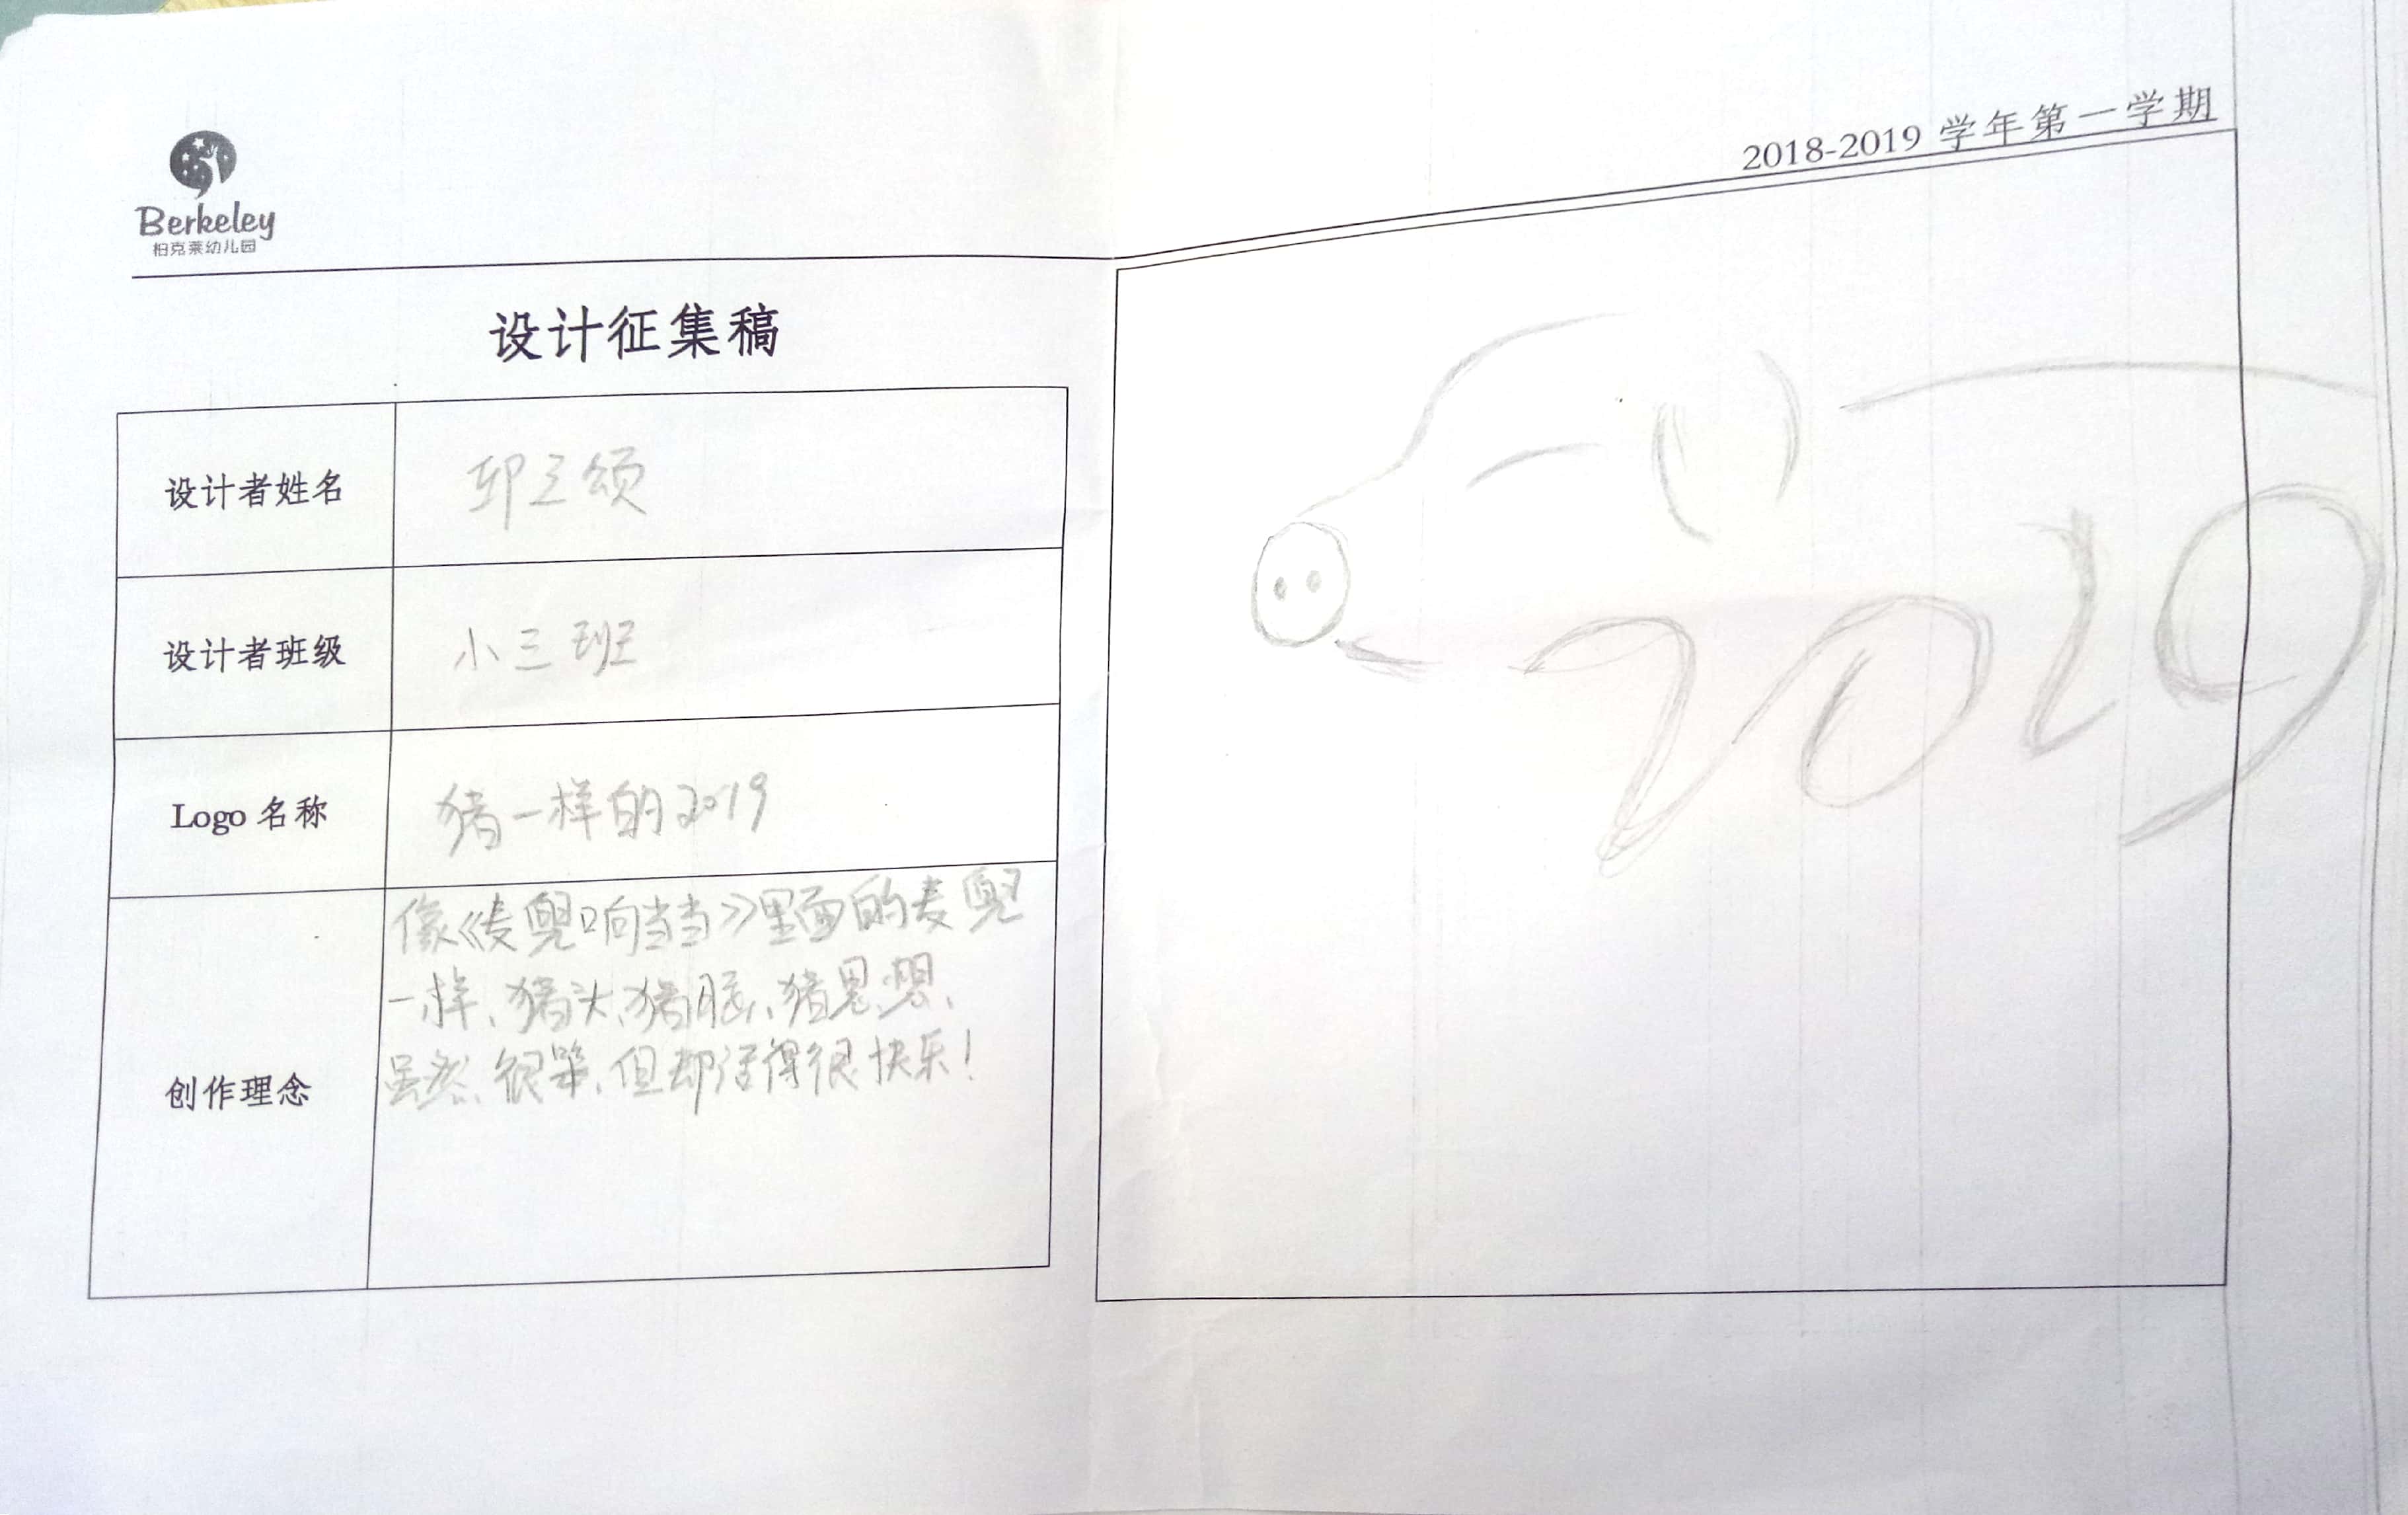 Berkeley
柏克莱幼儿园
2018-2019 学年第一学期
设计征集稿
设计者姓名
设计者班级
小三班
Logo 名称
猪一样的2019
创作理念
像《麦兜响当当》里面的麦兜
一样、猪头、猪脑、猪思想、
虽然很笨、但却活得很快乐!
2019